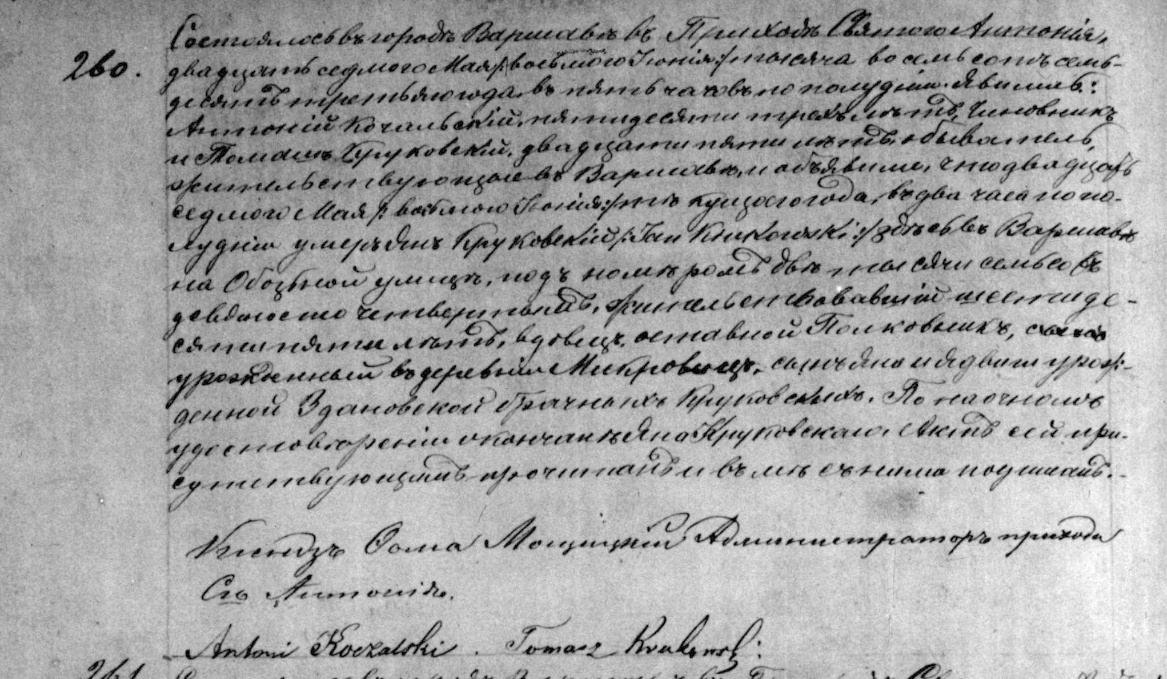 260.
Состоялось въ городѣ Варшавѣ въ Приходѣ Святого Антонія,
двадцать седмого Мая /: восьмого Іюня :/ тысяча восемьсотъ семь-
десятъ третьяго года, въ пять часовъ по полудни. Явились:
Антоній Кочальскій, пятидесяти трехъ лѣтъ, Чиновникъ
и Томашъ Круковскій, двадцати пяти лѣтъ, обыватель,
жительствующіе въ Варшавѣ, и объявили, что двадцать
седмого Мая /: восьмого Іюня :/ текущаго года, въ два часа по по-
лудни умеръ Янъ Круковскій /: Jan Krukowski :/ здѣсь въ Варшавѣ
на Обозной улицѣ, подъ номеромъ двѣ тысячи семьсотъ
девяносто четвертымъ, жительствовавшій шестиде-
сяти пяти лѣтъ, вдовецъ, оставной Полковникъ,
урожденный въ деревнѣ сынъ Яна и Ядвиги урож-
денной Здановской брачныхъ Круковскихъ. По наочномъ
удостовѣреніи о кончинѣ Яна Круковскаго, Актъ сей при-
сутствующимъ прочитанъ и въмѣстѣ съ ними подписанъ.
Ксендзъ Ѳома Мощицкій Администраторъ прихода
Св. Антонія.
Antoni Koczalski. Tomasz
261.